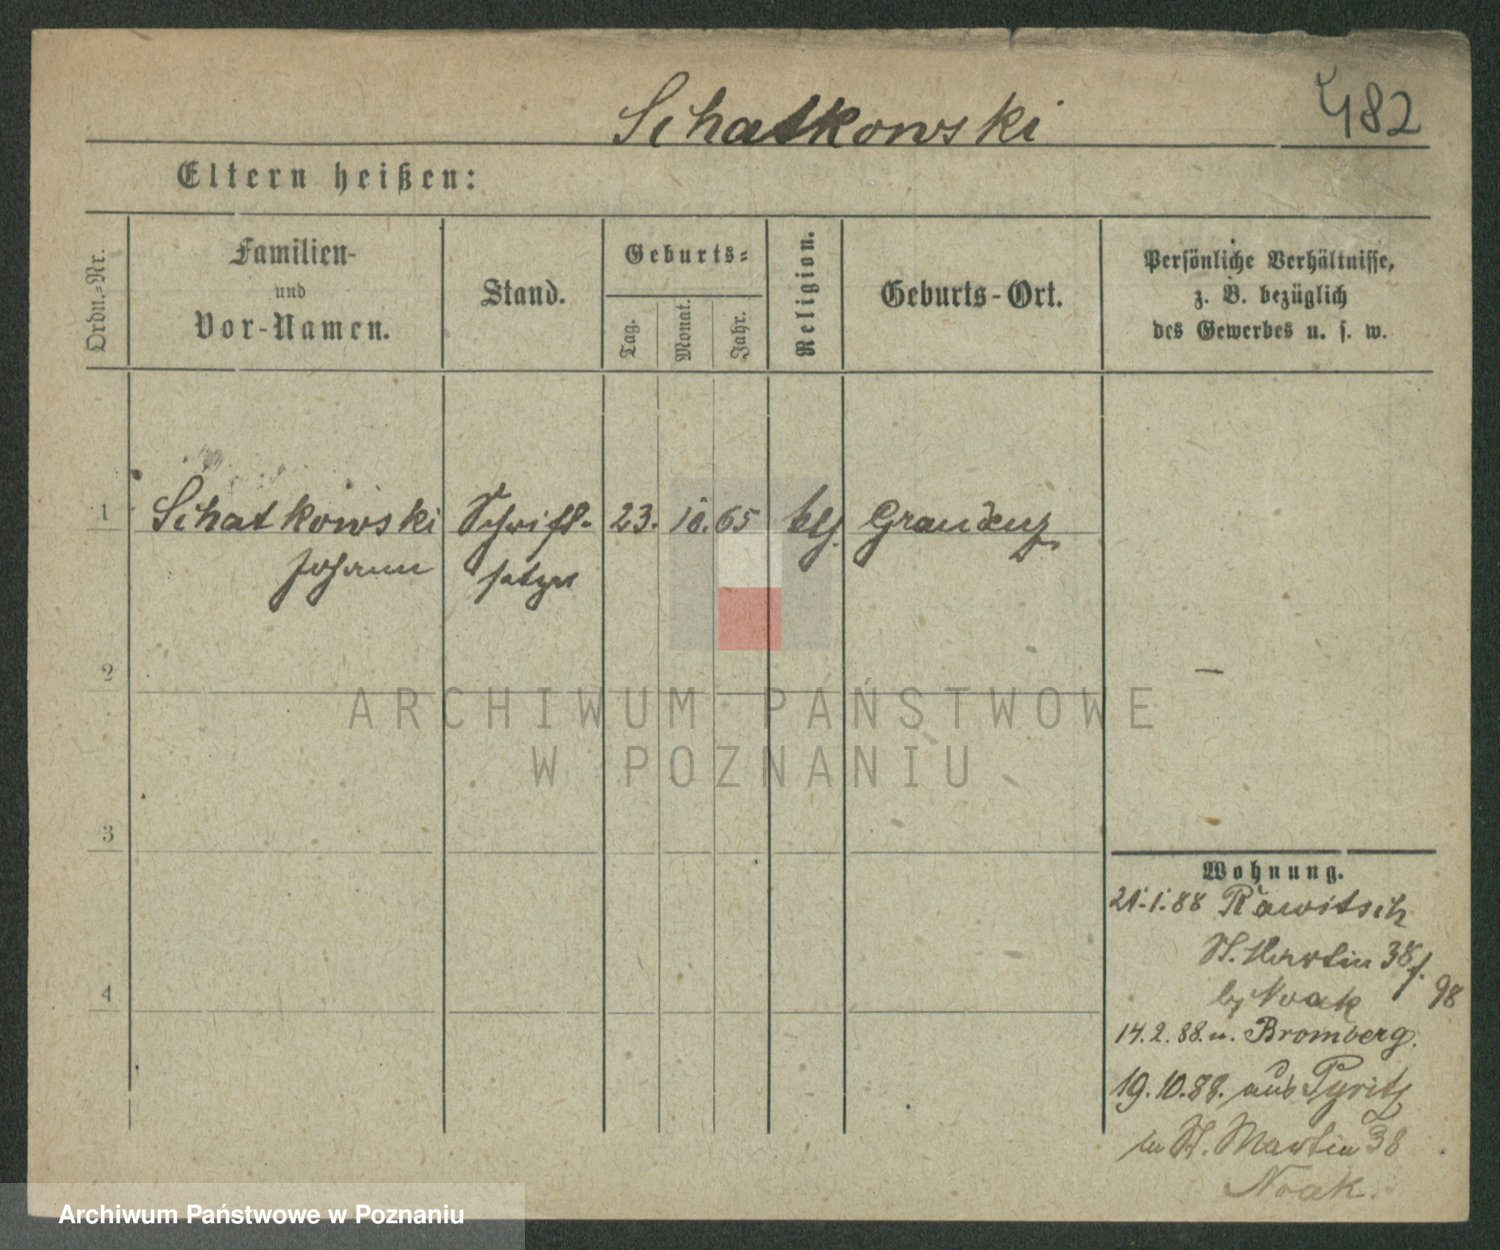 Schatkowski
482
Eltern heißen:
Ordn.-Nr.
Familien-
und
Vor-Namen.
Stand.
Geburts-
Tag.
Monat.
Jahr.
Religion.
Geburts-Ort.
Persönliche Verhältnisse,
z. B. bezüglich
des Gewerbes u. s. w.
1 Schatkowski Schrift- 23. 10. 65 Graudenz
Johann setzer
2
3
4
Wohnung.
21.1.88 Rawitsch
St. Martin 38
by Noak 98
14.2.88. n. Bromberg.
19.10.88. aus Pyritz
St. Martin 38
Noak.
ARCHIWUM PAŃSTWOWE
W POZNANIU
Archiwum Państwowe w Poznaniu